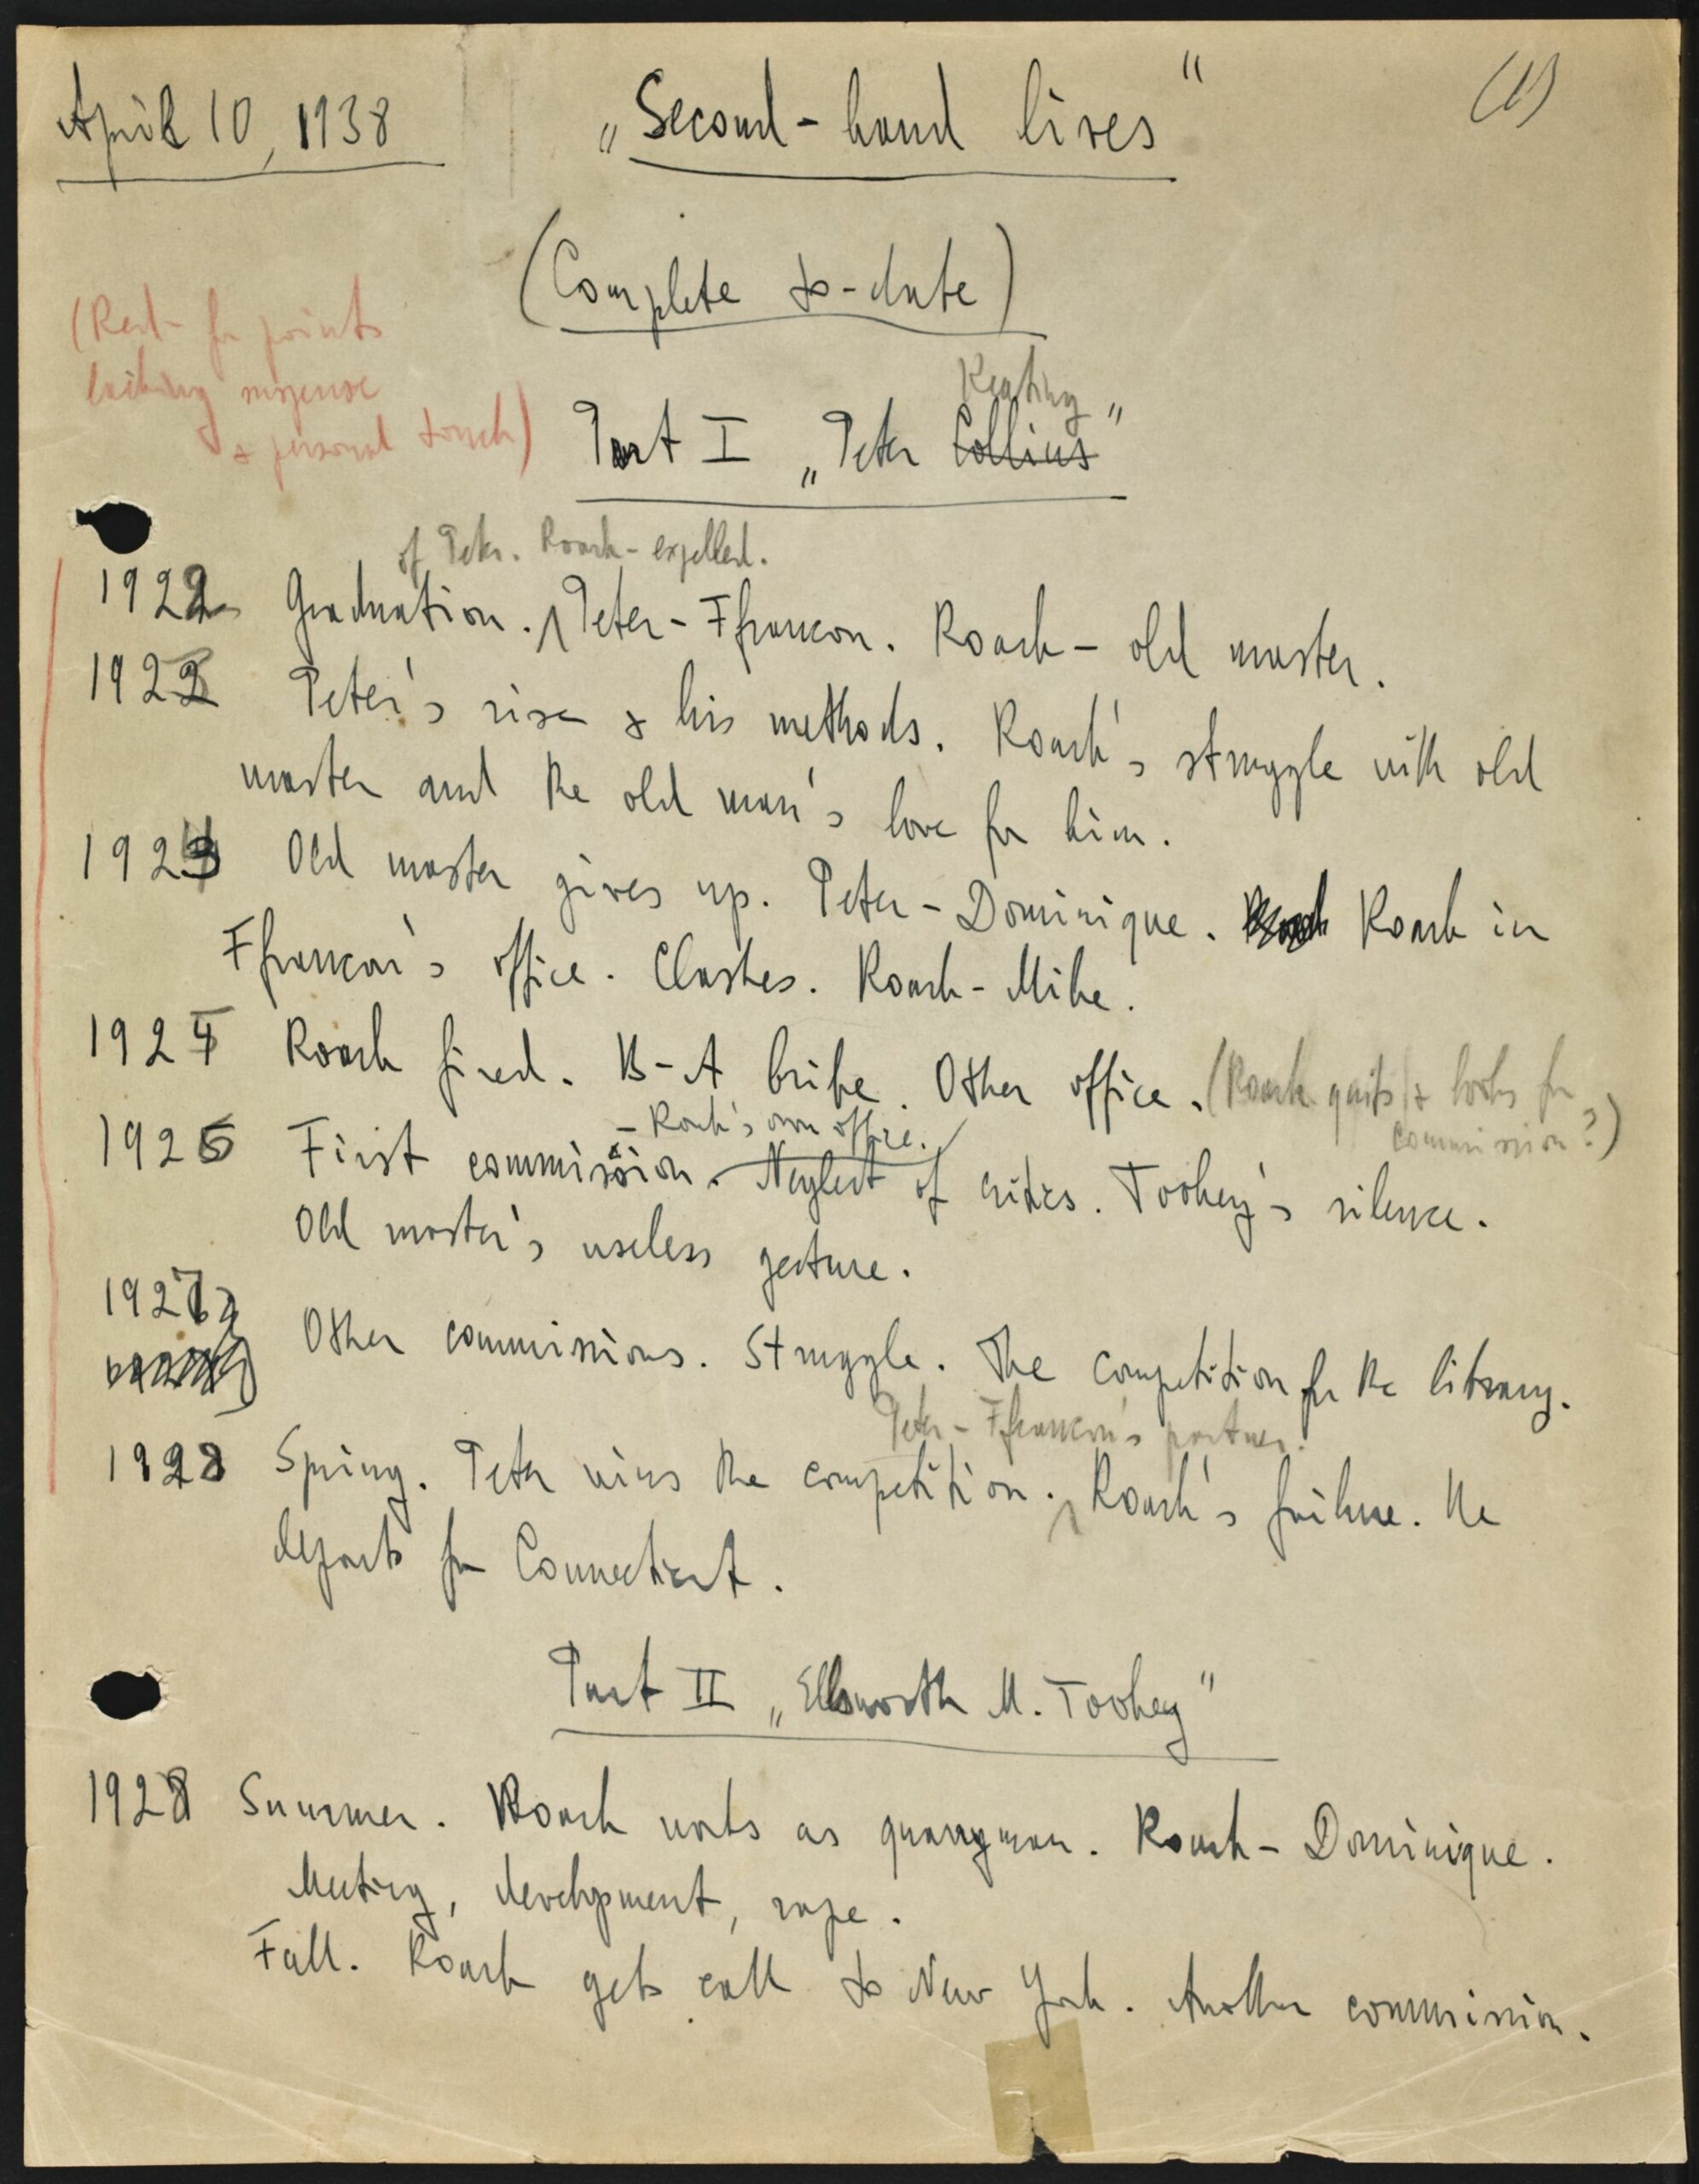 April 10, 1938
„Second-hand lives"
(1)
(Complete to-date)
(Red - for points
lacking suspense
& personal touch)
Keating
Part I „Peter Collins"
of Peter. Roark - expelled.
1922 Graduation. Peter - Ffrancon. Roark - old master.
1922 Peter's rise & his methods. Roark's struggle with old
master and the old man's love for him.
1923 Old master gives up. Peter - Dominique. Roark in
Ffrancon's office. Clashes. Roark - Mike.
1924 Roark fired. B-A bribe. Other office. (Roark quits & looks for
commission?)
- Roark's own office.
1925 First commission. Neglect of critics. Toohey's silence.
Old master's useless gesture.
1927
Other commissions. Struggle. The competition for the library.
Peter - Ffrancon's partner.
1928 Spring. Peter wins the competition. Roark's failure. He
departs for Connecticut.
Part II „Ellsworth M. Toohey"
1928 Summer. Roark works as quarryman. Roark - Dominique.
Meeting, development, rape.
Fall. Roark gets call to New York. Another commission.